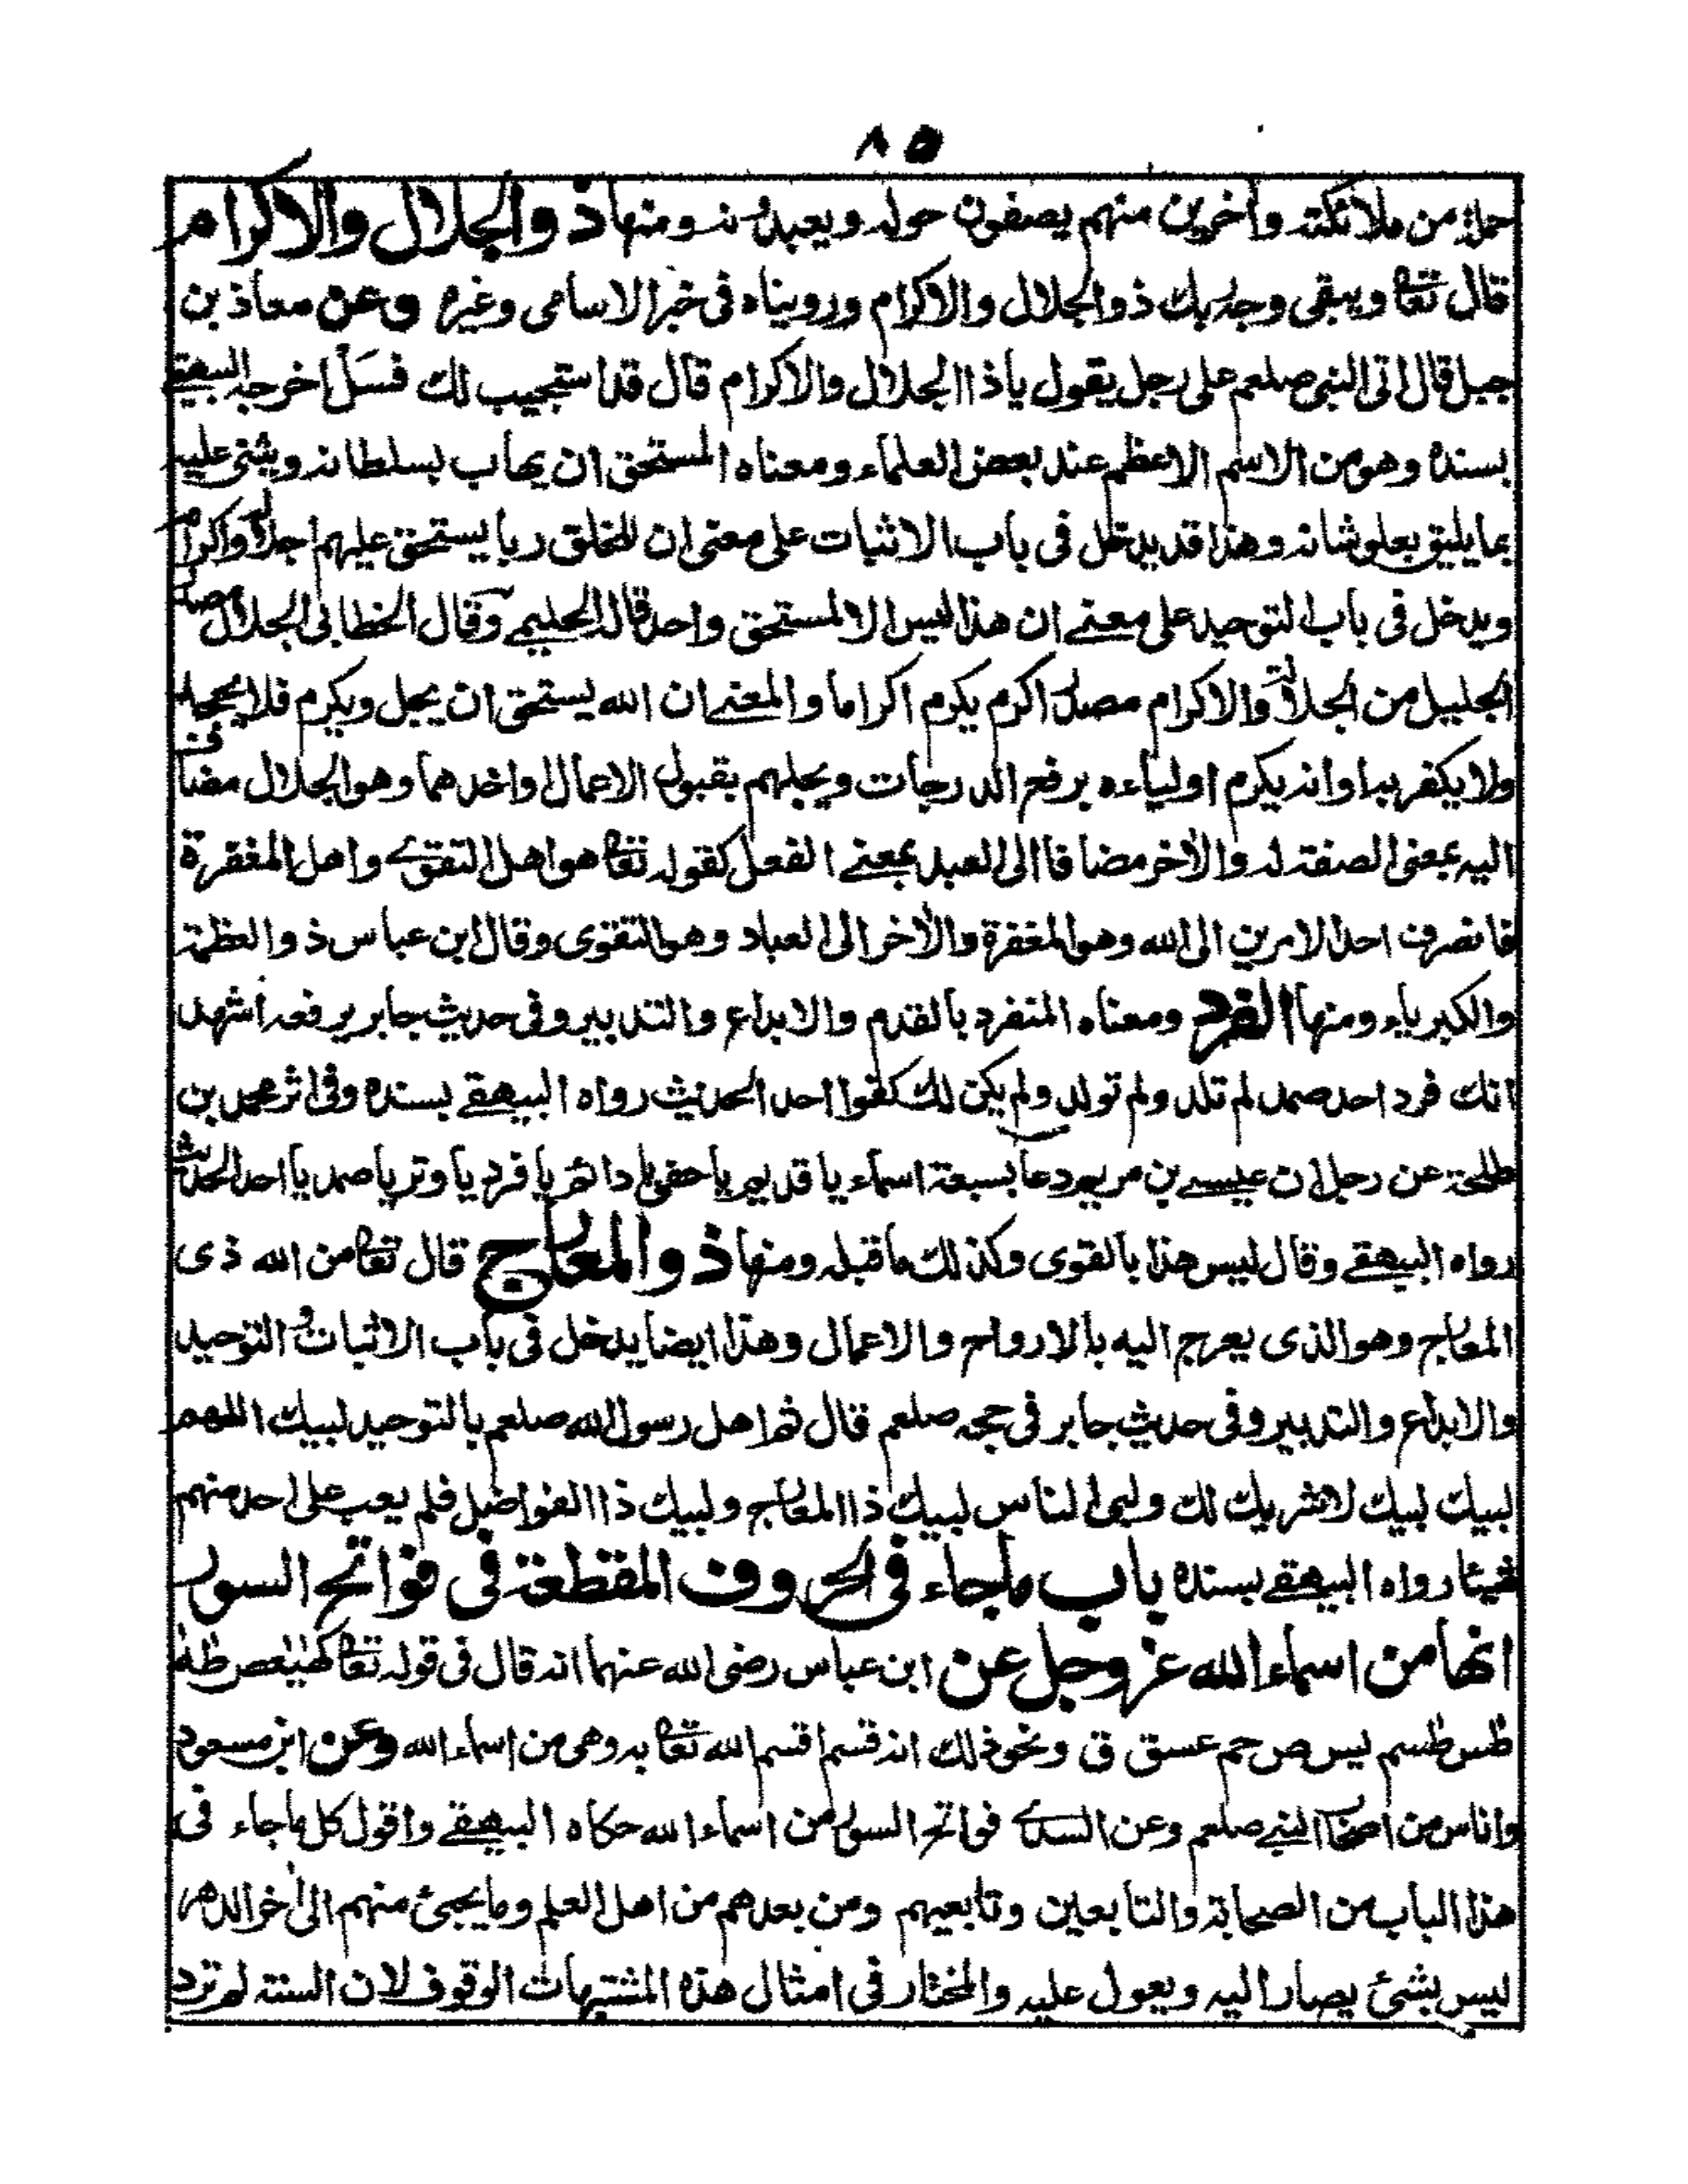 ٨٥
حملة من ملائكته وآخرين منهم يصفون حوله ويعبدونه ومنها ذوالجلال والاكرام
قال تعا ويبقى وجه ربك ذوالجلال والاكرام ورويناه فى خبر الاسامى وغيره وعن معاذ بن
جبل قال اتى النبى صلعم على رجل يقول ياذا الجلال والاكرام قال قد استجيب لك فسل اخرجه البيهقے
بسنده وهو من الاسم الاعظم عند بعض العلماء ومعناه المستحق ان يهاب بسلطانه ويثنى عليه
بما يليق بعلو شانه وهذا قد يدخل فى باب الاثبات على معنى ان للخلق ربا يستحق عليهم اجلاله واكرامه
ويدخل فى باب التوحيد على معنے ان هذا ليس الا لمستحق واحد قاله الحليمے وقال الخطابى الجلال مصدر
الجليل من الجلالة والاكرام مصدر اكرم يكرم اكراما والمعنے ان الله يستحق ان يجل ويكرم فلا يجحد
ولا يكفر به او انه يكرم اولياءه برفع الدرجات ويجلهم بقبول الاعمال واحدهما وهو الجلال مضافى
اليه بمعنى الصفة له والاخر مضافا الى العبد بمعنے الفعل كقوله تعا هو اهل التقوے واهل المغفرة
فانصرف احد الامرين الى الله وهو المغفرة والآخر الى العباد وهو التقوى وقال ابن عباس ذو العظمة
والكبرياء ومنها الفرد ومعناه المنفرد بالقدم والابداع والتدبير وفى حديث جابر يرفعه اشهد
انك فرد احد صمد لم تلد ولم تولد ولم يكن لك كفوا احد الحديث رواه البيهقے بسنده وفى اثر محمد بن
طلحة عن رجل ان عيسے بن مريم دعا بسبعة اسماء يا قديم يا حفى يا دائم يا فرد يا وتر يا صمد يا احد الحديث
رواه البيهقے وقال ليس هذا بالقوى وكذلك ما قبله ومنها ذوالمعارج قال تعا من الله ذى
المعارج وهو الذى يعرج اليه بالارواح والاعمال وهذا ايضا يدخل فى باب الاثبات والتوحيد
والابداع والتدبير وفى حديث جابر فى حجه صلعم قال ثم اهل رسول الله صلعم بالتوحيد لبيك اللهم
لبيك لبيك لا شريك لك ولبى الناس لبيك ذا المعارج ولبيك ذا الفواضل فلم يعب على احد منهم
شيئا رواه البيهقے بسنده باب ماجاء فى الحروف المقطعة فى فواتح السور
انها من اسماء الله عز وجل عن ابن عباس رضى الله عنهما انه قال فى قوله تعا كهيعص طه
طس طسم يس ص حم عسق ق ونحو ذلك انه قسم اقسم الله تعا به وهى من اسماء الله وعن ابن مسعود
واناس من اصحاب النبے صلعم وعن السدے فواتح السور من اسماء الله حكاه البيهقے واقول كل ماجاء فى
هذا الباب من الصحابة والتابعين وتابعيهم ومن بعدهم من اهل العلم وما يجىئ منهم الى آخر الدهر
ليس بشئ يصار اليه ويعول عليه والمختار فى امثال هذه المشتبهات الوقوف لان السنة لم ترد